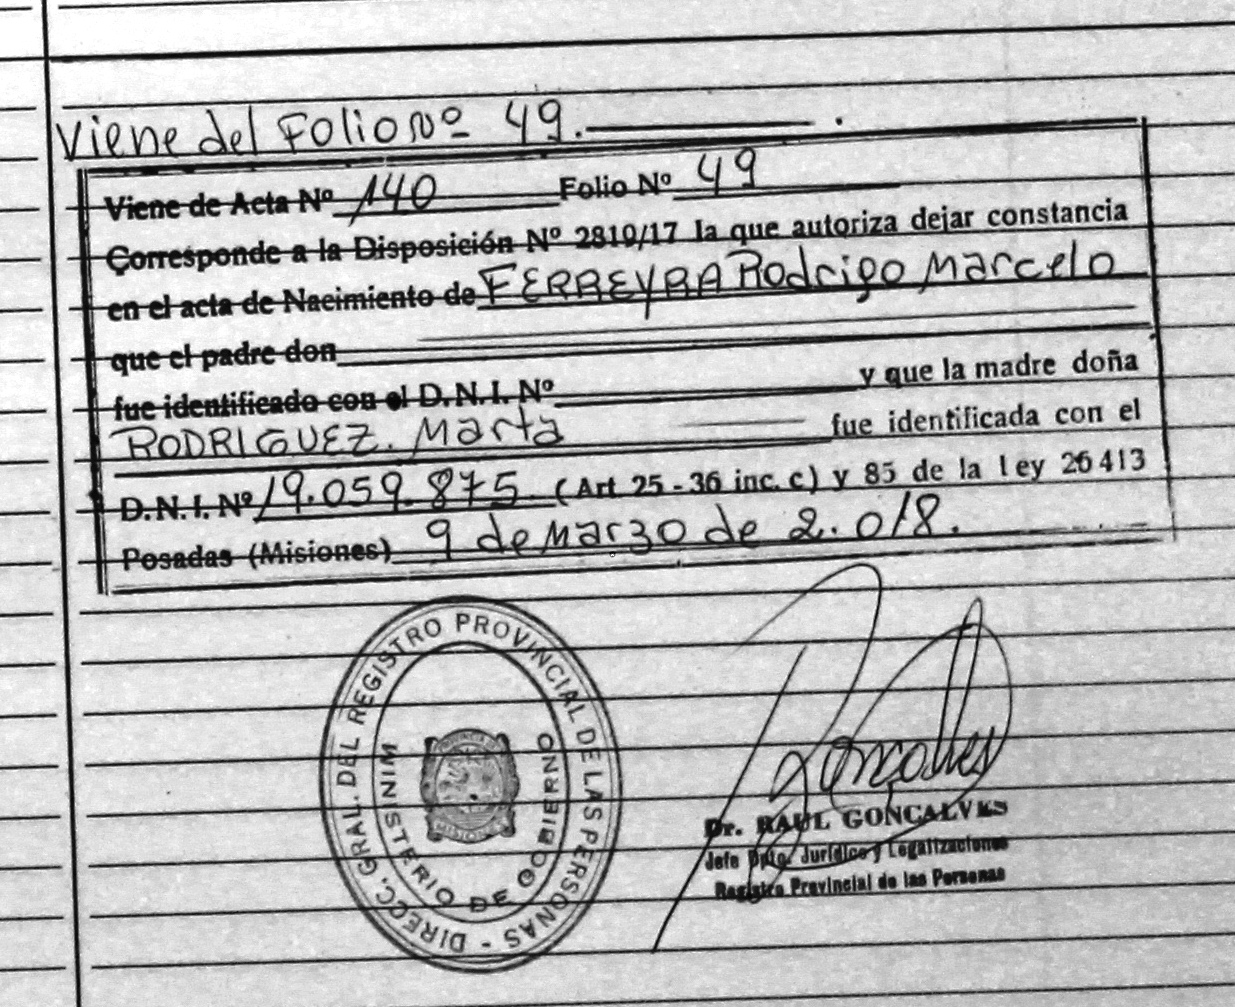 Viene del Folio Nº 49.
Viene de Acta Nº 140 Folio Nº 49
Corresponde a la Disposición Nº 2819/17 la que autoriza dejar constancia
en el acta de Nacimiento de FERREYRA Rodrigo Marcelo
que el padre don
fue identificado con el D.N.I. Nº y que la madre doña
RODRIGUEZ. Marta fue identificada con el
D.N.I. Nº 19.059.875. (Art 25-36 inc. c) y 85 de la ley 26413
Posadas (Misiones) 9 de Marzo de 2.018.
DIRECC. GRAL. DEL REGISTRO PROVINCIAL DE LAS PERSONAS -
MINISTERIO DE GOBIERNO
PROVINCIA DE
MISIONES
Gonçalves
Dr. RAUL GONÇALVES
Jefe Dpto. Jurídico y Legalizaciones
Registro Provincial de las Personas